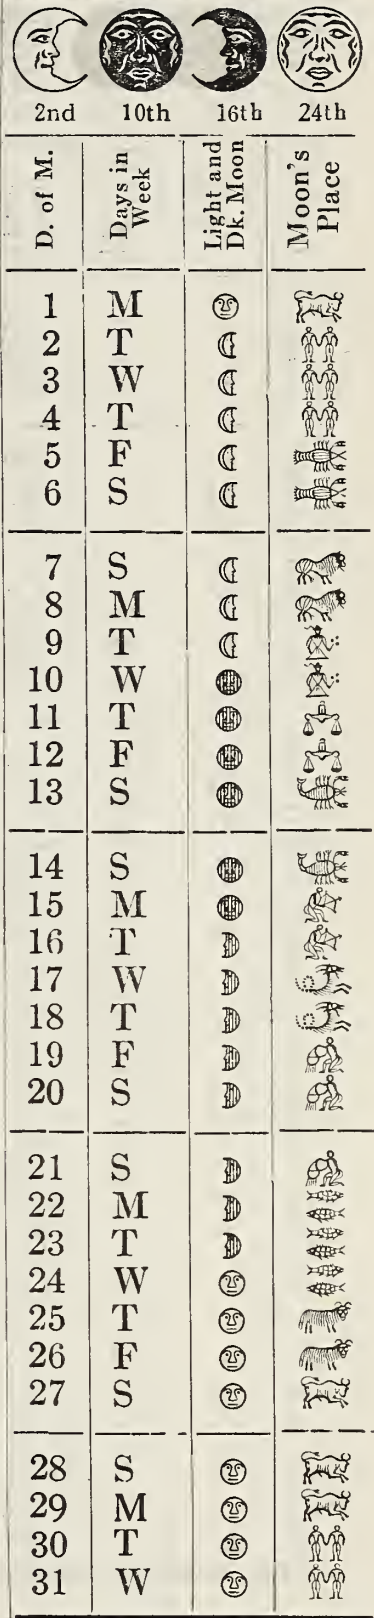 2nd 10th 16th 24th
D. of M. Days in Week Light and Dk. Moon Moon's Place
1 M
2 T
3 W
4 T
5 F
6 S
7 S
8 M
9 T
10 W
11 T
12 F
13 S
14 S
15 M
16 T
17 W
18 T
19 F
20 S
21 S
22 M
23 T
24 W
25 T
26 F
27 S
28 S
29 M
30 T
31 W